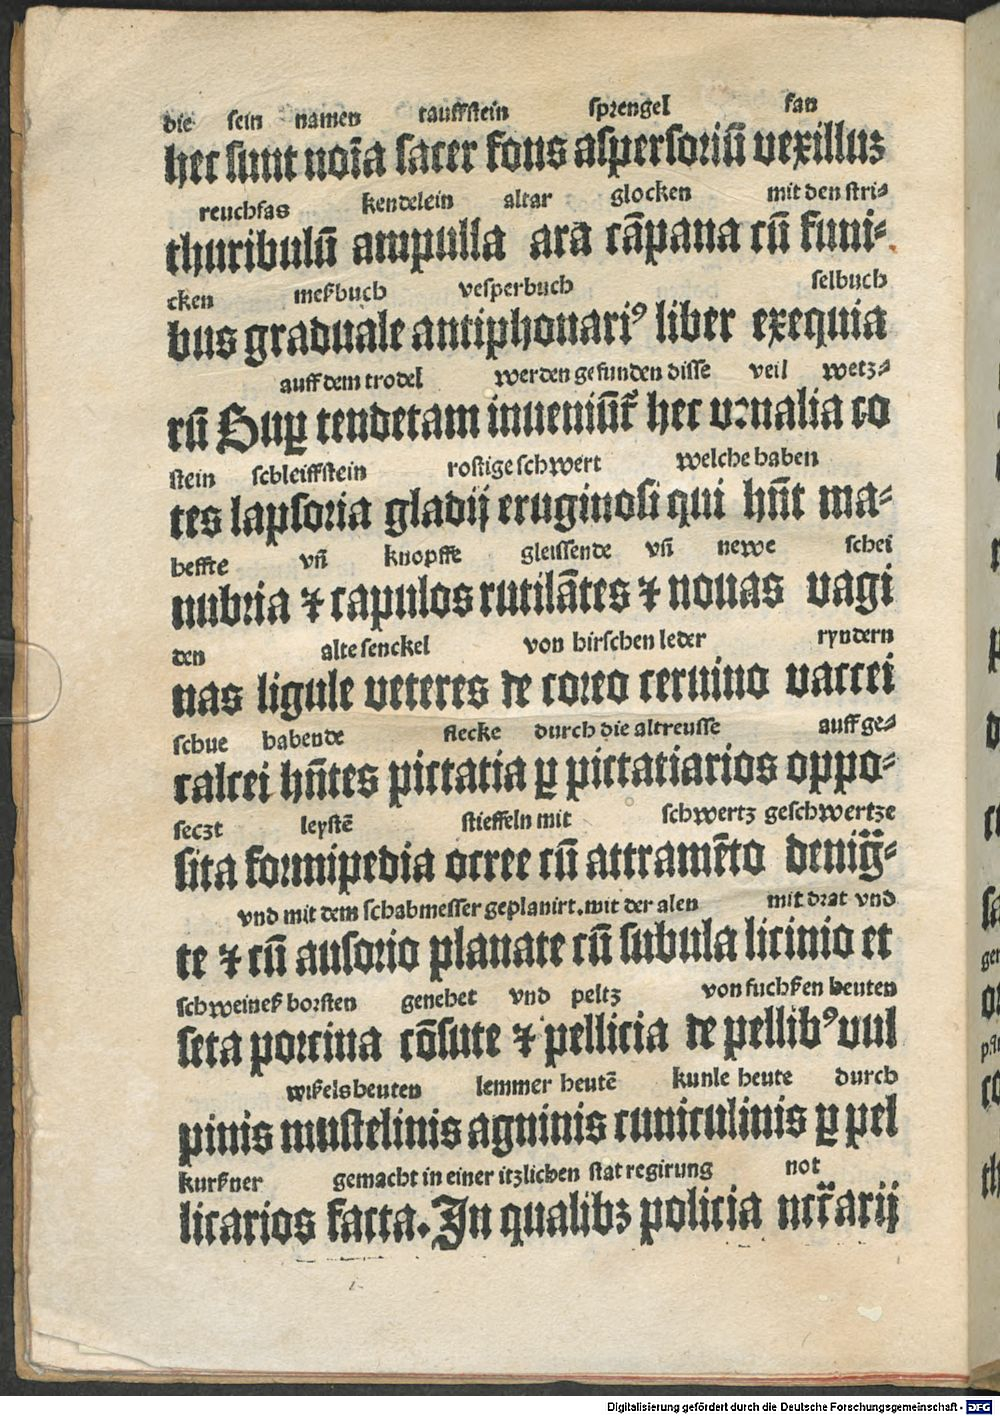 die sein namen tauffstein sprengel fan
hec sunt noı̄a sacer fons aspersoriū vexilluz
reuchfas kendelein altar glocken mit den stri⸗
thuribulū ampulla ara cāpana cū funi⸗
cken meßbuch vesperbuch selbuch
bus graduale antiphonariꝰ liber exequia
auff dem trodel werden gefunden disse veil wetz⸗
rū Suꝑ tendetam inueniūt᷑ hec vꝛnalia co
stein schleiffstein rostige schwert welche haben
tes lapsoria gladij eruginosi qui hn̄t ma⸗
heffte vn̄ knopffe gleissende vn̄ newe schei
nubria ⁊ capulos rutilātes ⁊ nouas vagi
den alte senckel von hirschen leder ryndern
nas ligule veteres de coreo ceruino vaccei
schue habende flecke durch die altreusse auff ge⸗
calcei hn̄tes pictatia ꝑ pictatiarios oppo⸗
seczt leystē stieffeln mit schwertz geschwertze
sita formipedia ocree cū attramēto denig̈⸗
vnd mit dem schabmesser geplanirt. mit der alen mit drat vnd
te ⁊ cū ausorio planate cū subula licinio et
schweineß borsten genehet vnd peltz von fuchßen heuten
seta porcina cōsute ⁊ pellicia de pellibꝰ vul
wißelsheuten lemmer heutē kunle heute durch
pinis mustelinis agninis cuniculinis ꝑ pel
kurßner gemacht in einer itzlichen stat regirung not
licarios facta. In qualibꝫ policia nccr̄arij
Digitalisierung gefördert durch die Deutsche Forschungsgemeinschaft - DFG